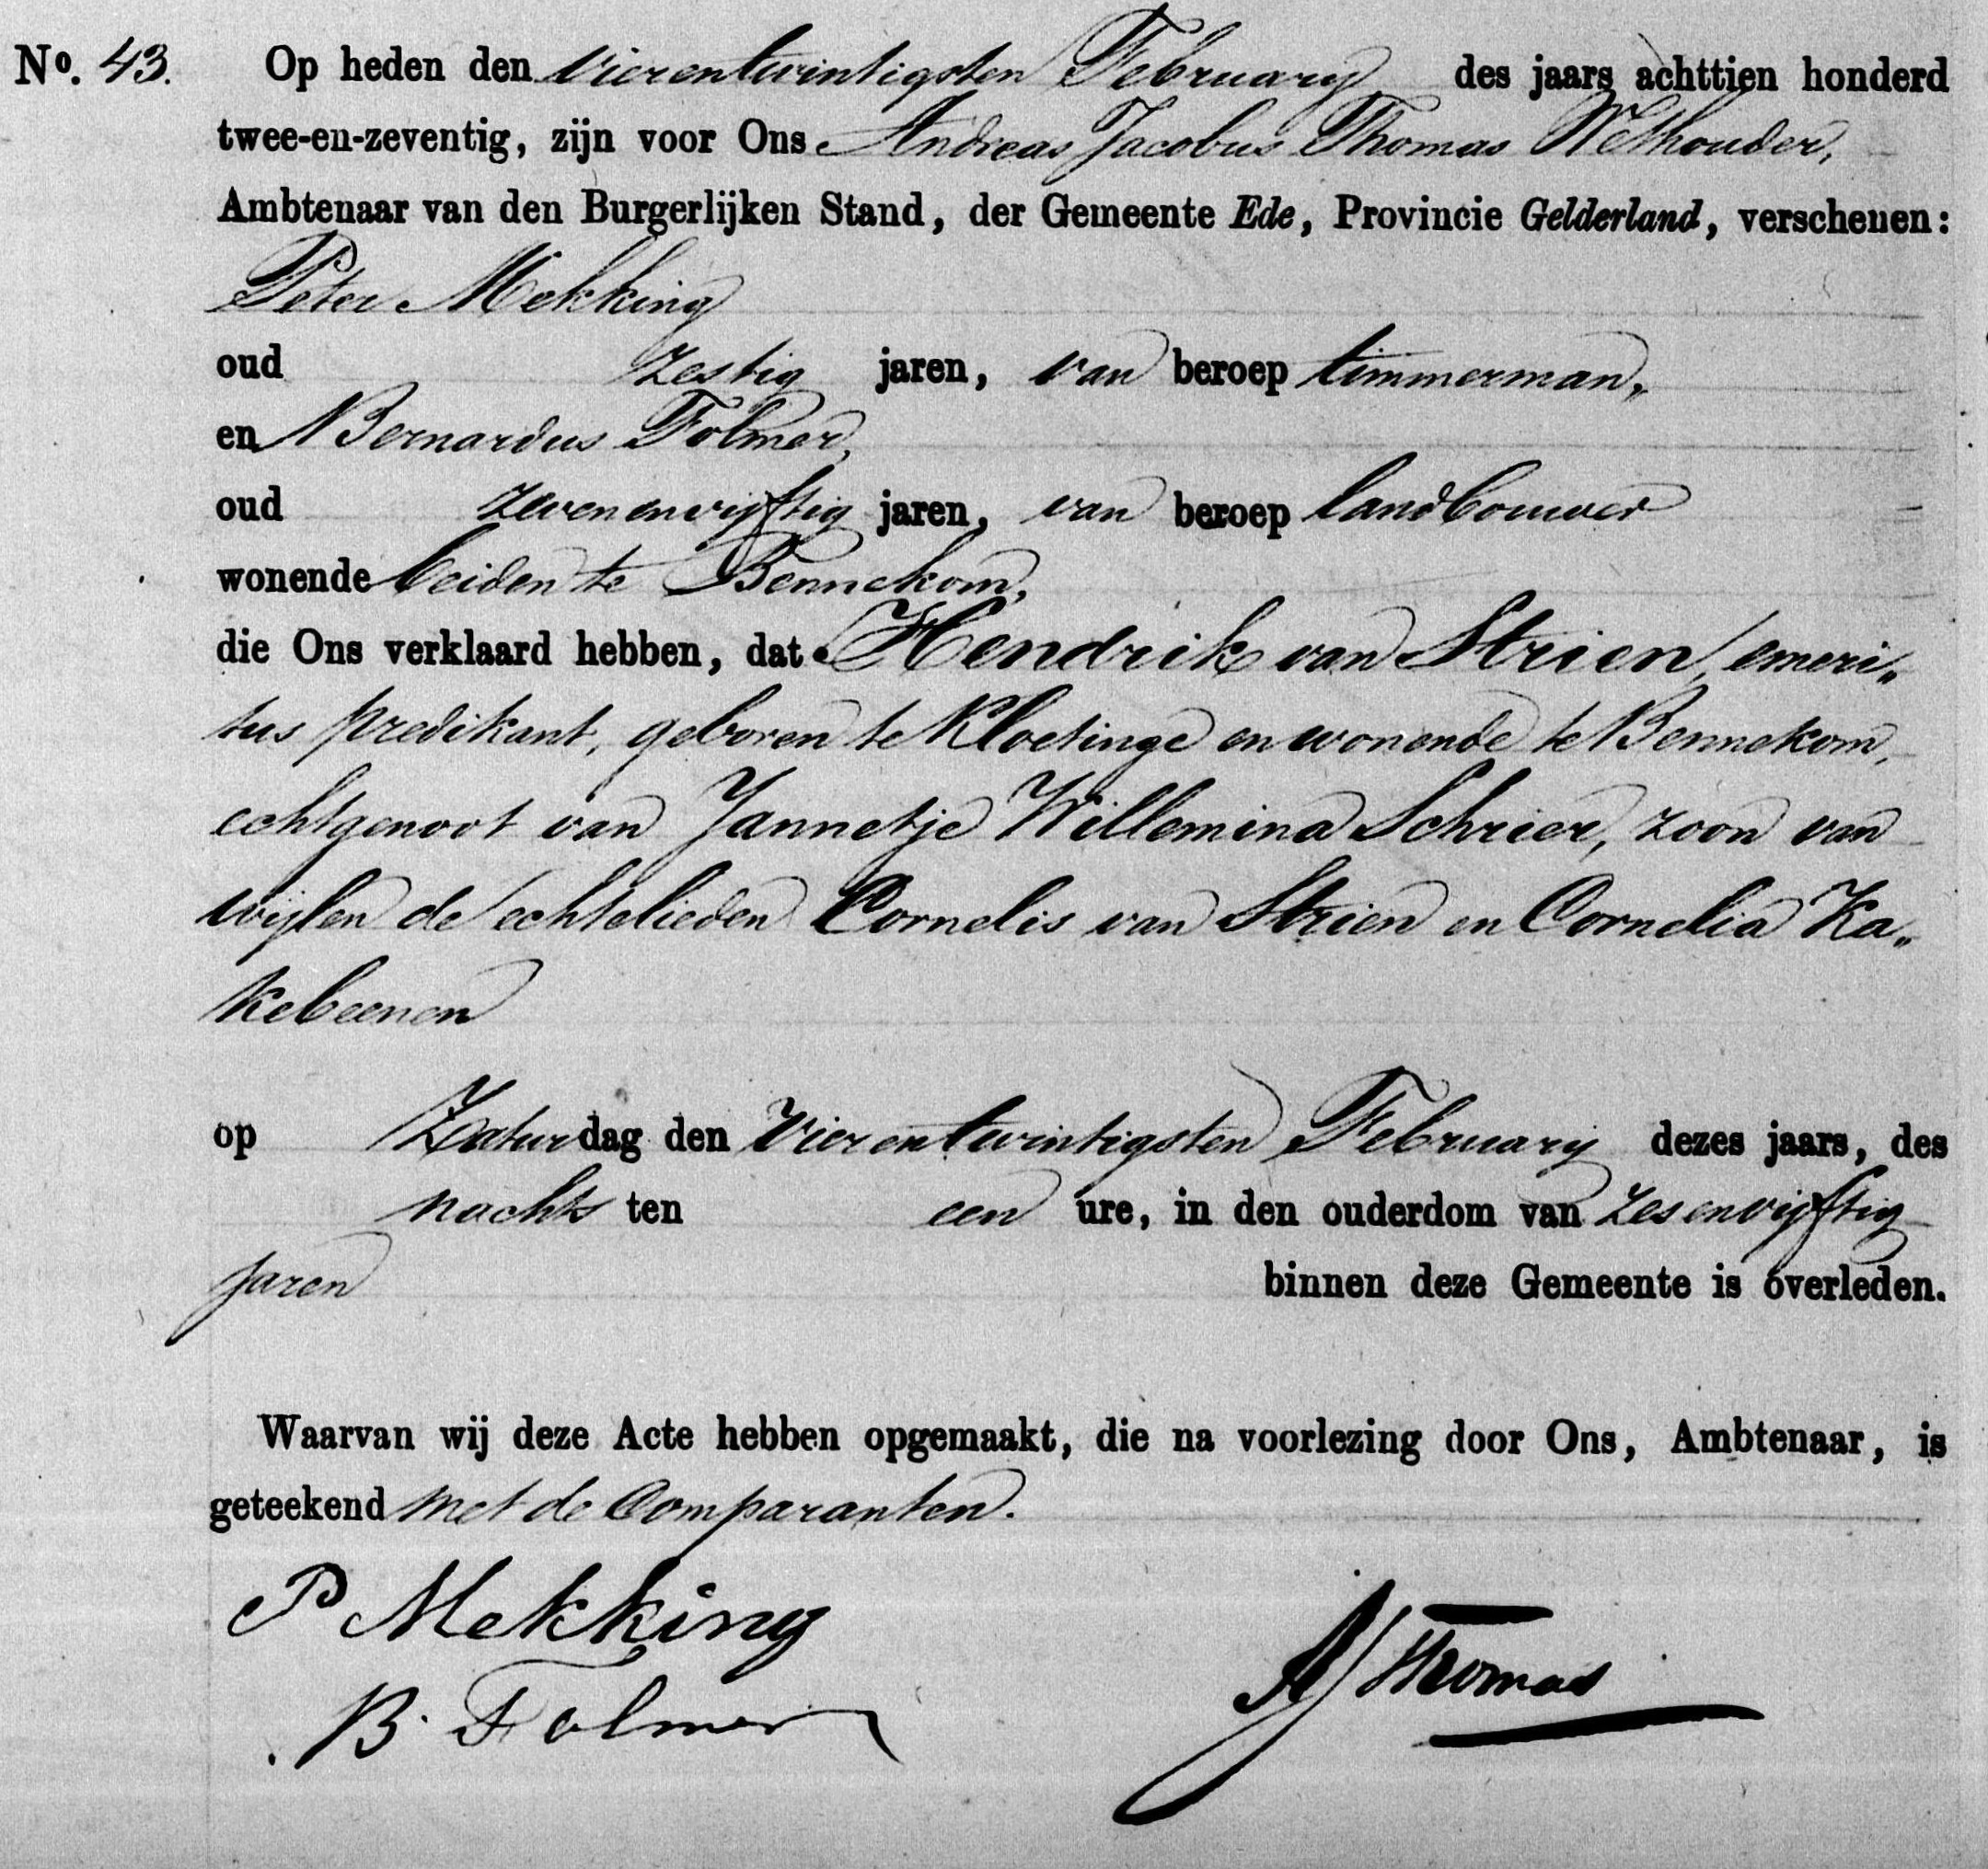 No. 43. Op heden den vierentwintigsten February des jaars achttien honderd
twee-en-zeventig, zijn voor Ons Andreas Jacobus Thomas Wethouder,
Ambtenaar van den Burgerlijken Stand, der Gemeente Ede, Provincie Gelderland, verschenen:
Peter Mekking
oud zestig jaren, van beroep timmerman,
en Bernardus Folmer,
oud zevenenvijftig jaren, van beroep landbouwer
wonende beiden te Bennekom,
die Ons verklaard hebben, dat Hendrik van Strien, emeri„
tus predikant, geboren te Kloetinge en wonende te Bennekom,
echtgenoot van Jannetje Willemina Schrier, zoon van
wijlen de echtelieden Cornelis van Strien en Cornelia Ka„
kebeenen
op Zaturdag den vierentwintigsten February dezes jaars, des
nachts ten een ure, in den ouderdom van zesenvijftig
jaren binnen deze Gemeente is overleden.
Waarvan wij deze Acte hebben opgemaakt, die na voorlezing door Ons, Ambtenaar, is
geteekend met de Comparanten.
P Mekking
B. Folmer
AJ Thomas